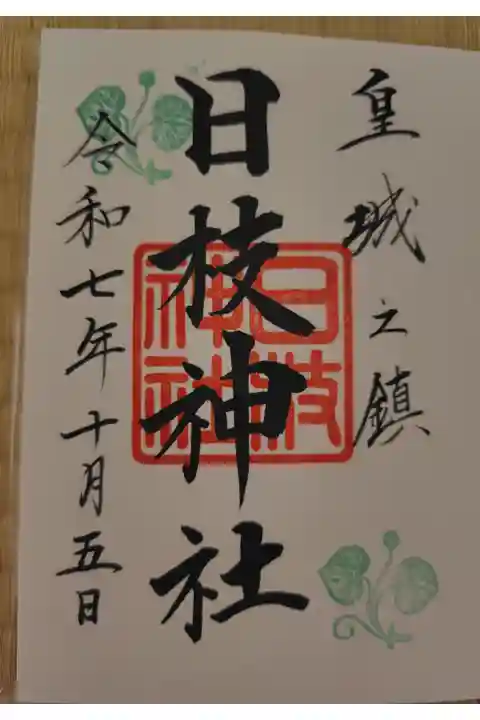 皇城之鎮
日枝神社
日枝
神社
令和七年十月五日